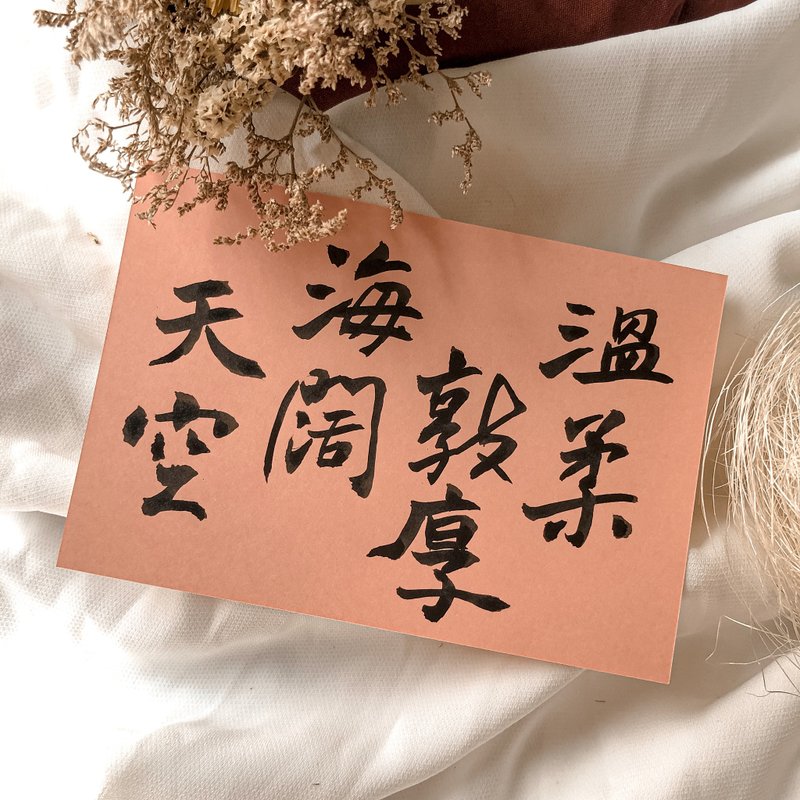 溫柔
敦厚
海闊
天空